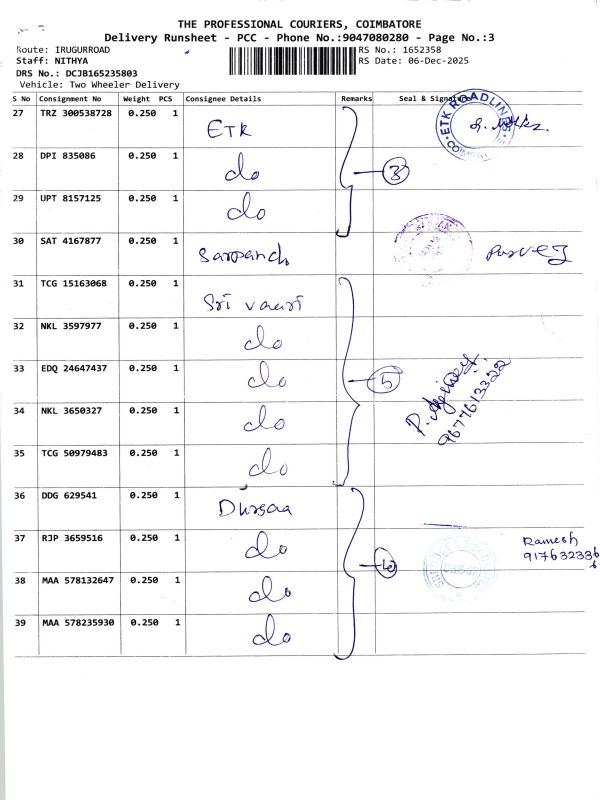 THE PROFESSIONAL COURIERS, COIMBATORE
Delivery Runsheet - PCC - Phone No.:9047080280 - Page No.:3
Route: IRUGURROAD RS No.: 1652358
Staff: NITHYA RS Date: 06-Dec-2025
DRS No.: DCJB165235803
Vehicle: Two Wheeler Delivery
S No Consignment No Weight PCS Consignee Details Remarks Seal & Signature
27 TRZ 300538728 0.250 1 ETK
ETK ROADLINES
28 DPI 835086 0.250 1 do
3
29 UPT 8157125 0.250 1 do
30 SAT 4167877 0.250 1 Sarpanch
31 TCG 15163068 0.250 1 Sri Vauri
32 NKL 3597977 0.250 1 do
33 EDQ 24647437 0.250 1 do
5
9677613322
34 NKL 3650327 0.250 1 do
35 TCG 50979483 0.250 1 do
36 DDG 629541 0.250 1 Durgaa
37 RJP 3659516 0.250 1 do
4
Ramesh
9176323366
38 MAA 578132647 0.250 1 do
39 MAA 578235930 0.250 1 do